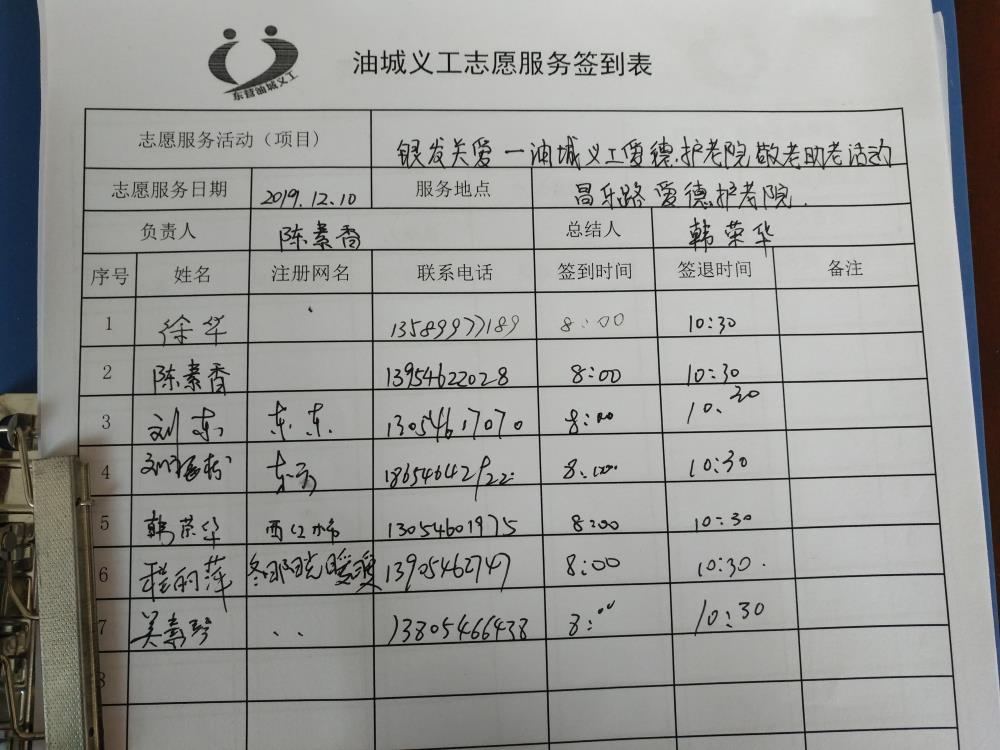 东营油城义工
油城义工志愿服务签到表
志愿服务活动（项目） 银发关爱一油城义工爱德护老院敬老助老活动
志愿服务日期 2019.12.10 服务地点 昌乐路爱德护老院.
负责人 陈素香 总结人 韩荣华
序号 姓名 注册网名 联系电话 签到时间 签退时间 备注
1 徐华 13589977189 8:00 10:30
2 陈素香 13954622028 8:00 10:30
3 刘东 东东 13054617070 8:00 10:30
4 18654642922 8:00 10:30
5 韩荣华 13054601975 8:00 10:30
6 程丽萍 冬日阳光暖暖 13905462747 8:00 10:30.
7 吴素琴 .. 13805466438 8:00 10:30
8